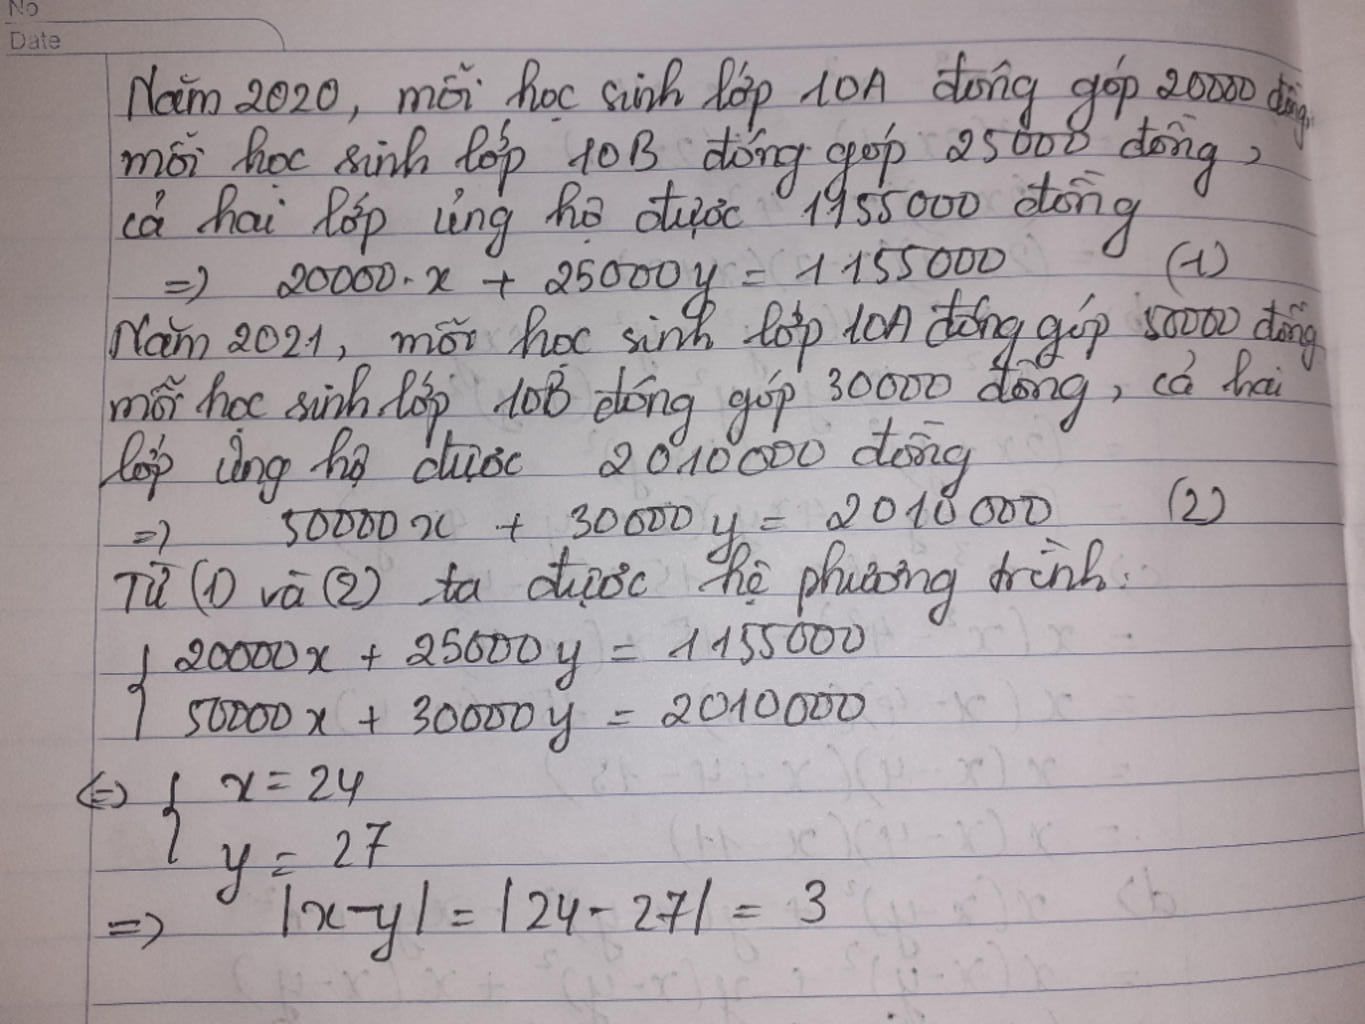 No
Date
Năm 2020, mỗi học sinh lớp 10A đóng góp 20000 đồng,
mỗi học sinh lớp 10B đóng góp 25000 đồng,
cả hai lớp ủng hộ được 1155000 đồng
=> 20000.x + 25000y = 1155000 (1)
Năm 2021, mỗi học sinh lớp 10A đóng góp 50000 đồng
mỗi học sinh lớp 10B đóng góp 30000 đồng, cả hai
lớp ủng hộ được 2010000 đồng
=> 50000x + 30000y = 2010000 (2)
Từ (1) và (2) ta được hệ phương trình:
{ 20000x + 25000y = 1155000
50000x + 30000y = 2010000
<=> { x = 24
y = 27
=> |x-y| = |24-27| = 3